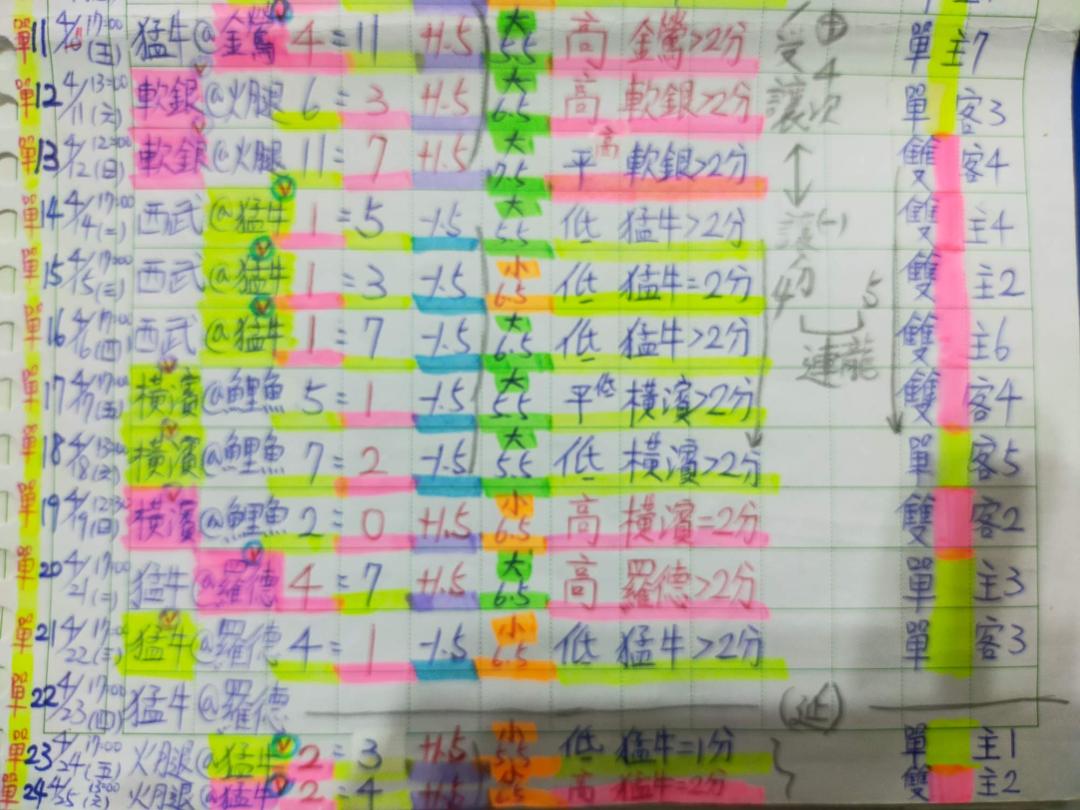 單 11 4/10 17:00 (五) 猛牛@金鶯 4=11 +1.5 大5.5 高 金鶯>2分 受讓 中4次 單 主7
單 12 4/11 13:00 (六) 軟銀@火腿 6=3 +1.5 大6.5 高 軟銀>2分 單 客3
單 13 4/12 12:00 (日) 軟銀@火腿 11=7 +1.5 大7.5 平高 軟銀>2分 雙 客4
單 14 4/14 17:00 (二) 西武@猛牛 1=5 -1.5 大5.5 低 猛牛>2分 讓(-) 雙 主4
單 15 4/15 17:00 (三) 西武@猛牛 1=3 -1.5 小6.5 低 猛牛=2分 4分 5 雙 主2
單 16 4/16 17:00 (四) 西武@猛牛 1=7 -1.5 大6.5 低 猛牛>2分 連龍 雙 主6
單 17 4/17 17:00 (五) 橫濱@鯉魚 5=1 -1.5 大5.5 平低 橫濱>2分 雙 客4
單 18 4/18 13:00 (六) 橫濱@鯉魚 7=2 -1.5 大5.5 低 橫濱>2分 單 客5
單 19 4/19 12:30 (日) 橫濱@鯉魚 2=0 +1.5 小6.5 高 橫濱=2分 雙 客2
單 20 4/21 17:00 (二) 猛牛@羅德 4=7 +1.5 大6.5 高 羅德>2分 單 主3
單 21 4/22 17:00 (三) 猛牛@羅德 4=1 -1.5 小6.5 低 猛牛>2分 單 客3
單 22 4/23 17:00 (四) 猛牛@羅德 (延)
單 23 4/24 17:00 (五) 火腿@猛牛 2=3 +1.5 小5.5 低 猛牛=1分 單 主1
單 24 4/25 13:00 (六) 火腿@猛牛 2=4 +1.5 小6.5 高 猛牛=2分 雙 主2